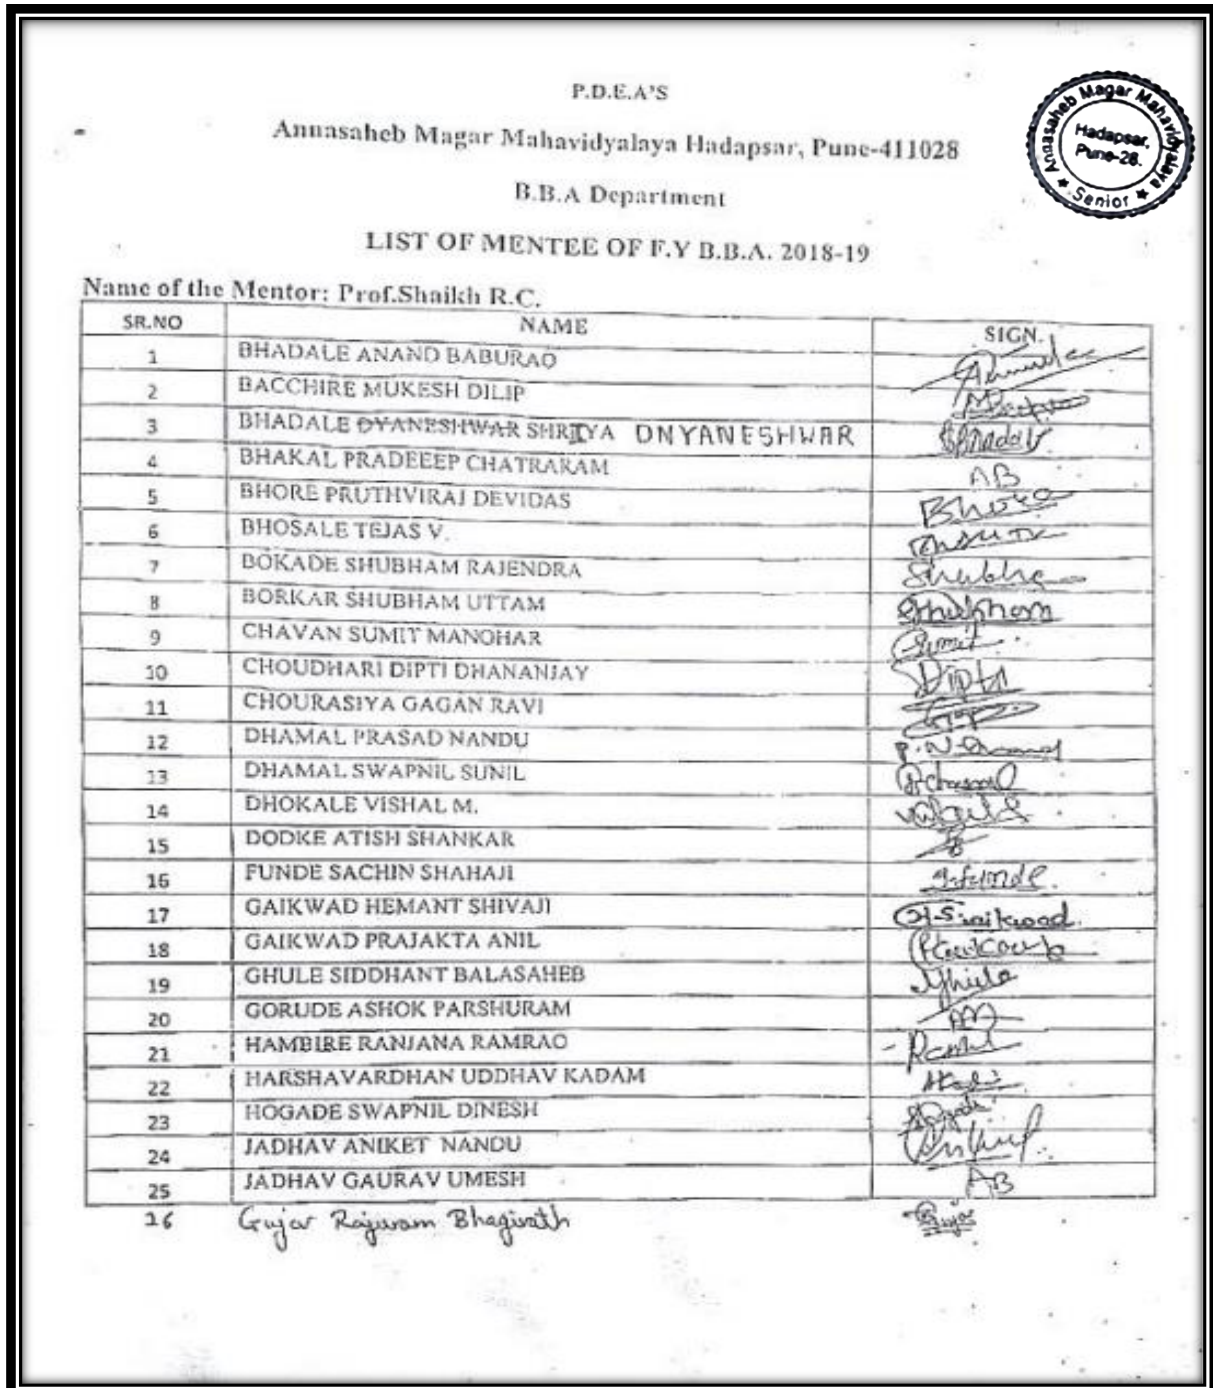 P.D.E.A'S
Annasaheb Magar Mahavidyalaya Hadapsar, Pune-411028
Annasaheb Magar Mahavidyalaya
Hadapsar,
Pune-28.
Senior
B.B.A Department
LIST OF MENTEE OF F.Y B.B.A. 2018-19
Name of the Mentor: Prof.Shaikh R.C.
SR.NO NAME SIGN.
1 BHADALE ANAND BABURAO
2 BACCHIRE MUKESH DILIP
3 BHADALE DYANESHWAR SHRIYA DNYANESHWAR
4 BHAKAL PRADEEEP CHATRARAM AB
5 BHORE PRUTHVIRAJ DEVIDAS Bhore
6 BHOSALE TEJAS V.
7 BOKADE SHUBHAM RAJENDRA
8 BORKAR SHUBHAM UTTAM Shubham
9 CHAVAN SUMIT MANOHAR Sumit
10 CHOUDHARI DIPTI DHANANJAY Dipti
11 CHOURASIYA GAGAN RAVI
12 DHAMAL PRASAD NANDU
13 DHAMAL SWAPNIL SUNIL
14 DHOKALE VISHAL M.
15 DODKE ATISH SHANKAR
16 FUNDE SACHIN SHAHAJI
17 GAIKWAD HEMANT SHIVAJI
18 GAIKWAD PRAJAKTA ANIL
19 GHULE SIDDHANT BALASAHEB Ghule
20 GORUDE ASHOK PARSHURAM
21 HAMBIRE RANJANA RAMRAO
22 HARSHAVARDHAN UDDHAV KADAM
23 HOGADE SWAPNIL DINESH
24 JADHAV ANIKET NANDU
25 JADHAV GAURAV UMESH AB
26 Gujar Rajuram Bhagirath Gujar